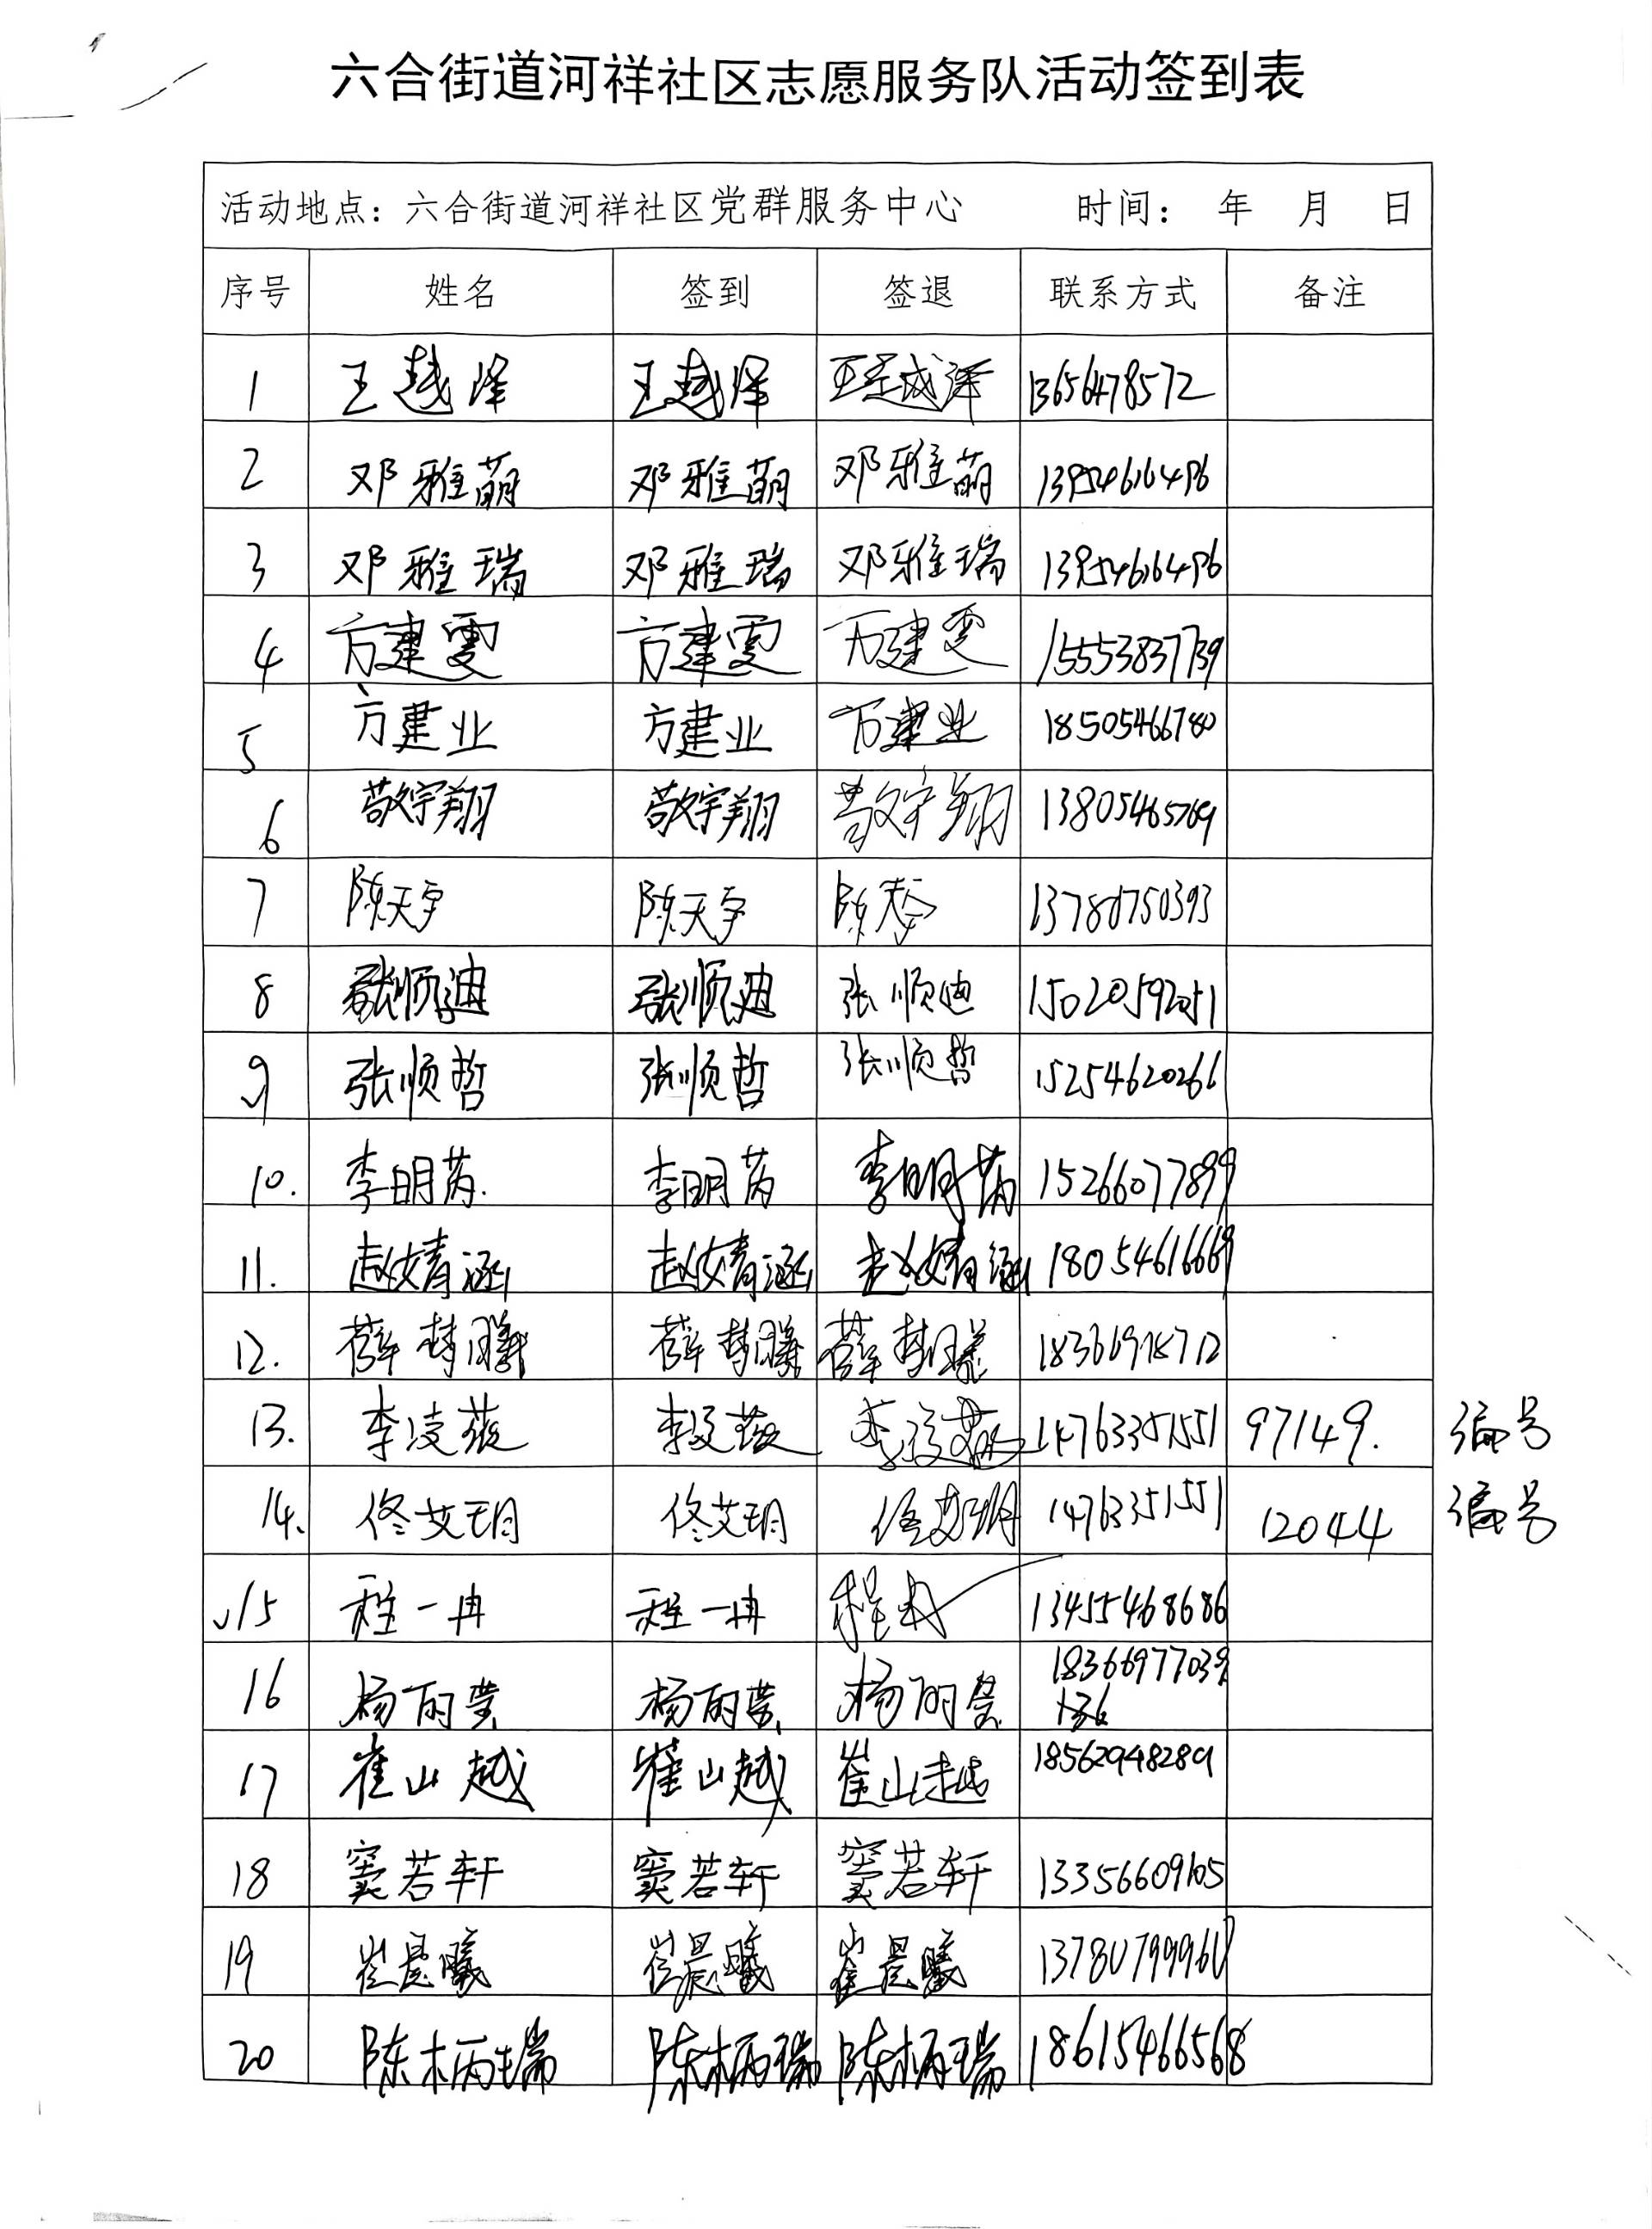 六合街道河祥社区志愿服务队活动签到表
活动地点：六合街道河祥社区党群服务中心 时间： 年 月 日
序号 姓名 签到 签退 联系方式 备注
1 王越泽 王越泽 王越泽 13656478572
2 邓雅萌 邓雅萌 邓雅萌 13954616496
3 邓雅瑞 邓雅瑞 邓雅瑞 13954616496
4 方建雯 方建雯 方建雯 15553837739
5 方建业 方建业 方建业 18505466780
6 敬宇翔 敬宇翔 敬宇翔 13805465769
7 陈天宇 陈天宇 13780750393
8 张顺迪 张顺迪 张顺迪 15020592051
9 张顺哲 张顺哲 张顺哲 15254620266
10. 李明芮. 李明芮 李明芮 15266077899
11. 赵婧涵 赵婧涵 赵婧涵 18054616669
12. 薛梦曦 薛梦曦 薛梦曦 18366918712
13. 97149. 编号
14. 佟艾玥 佟艾玥 佟艾玥 14763351551 12044 编号
15 程一冉 程一冉 13455468686
16 杨雨莹 杨雨莹 杨雨莹 18366977039
17 崔山越 崔山越 崔山越 18562948289
18 窦若轩 窦若轩 窦若轩 13356609105
19 崔晨曦 崔晨曦 崔晨曦
20 陈柄瑞 陈柄瑞 陈柄瑞 18615466568